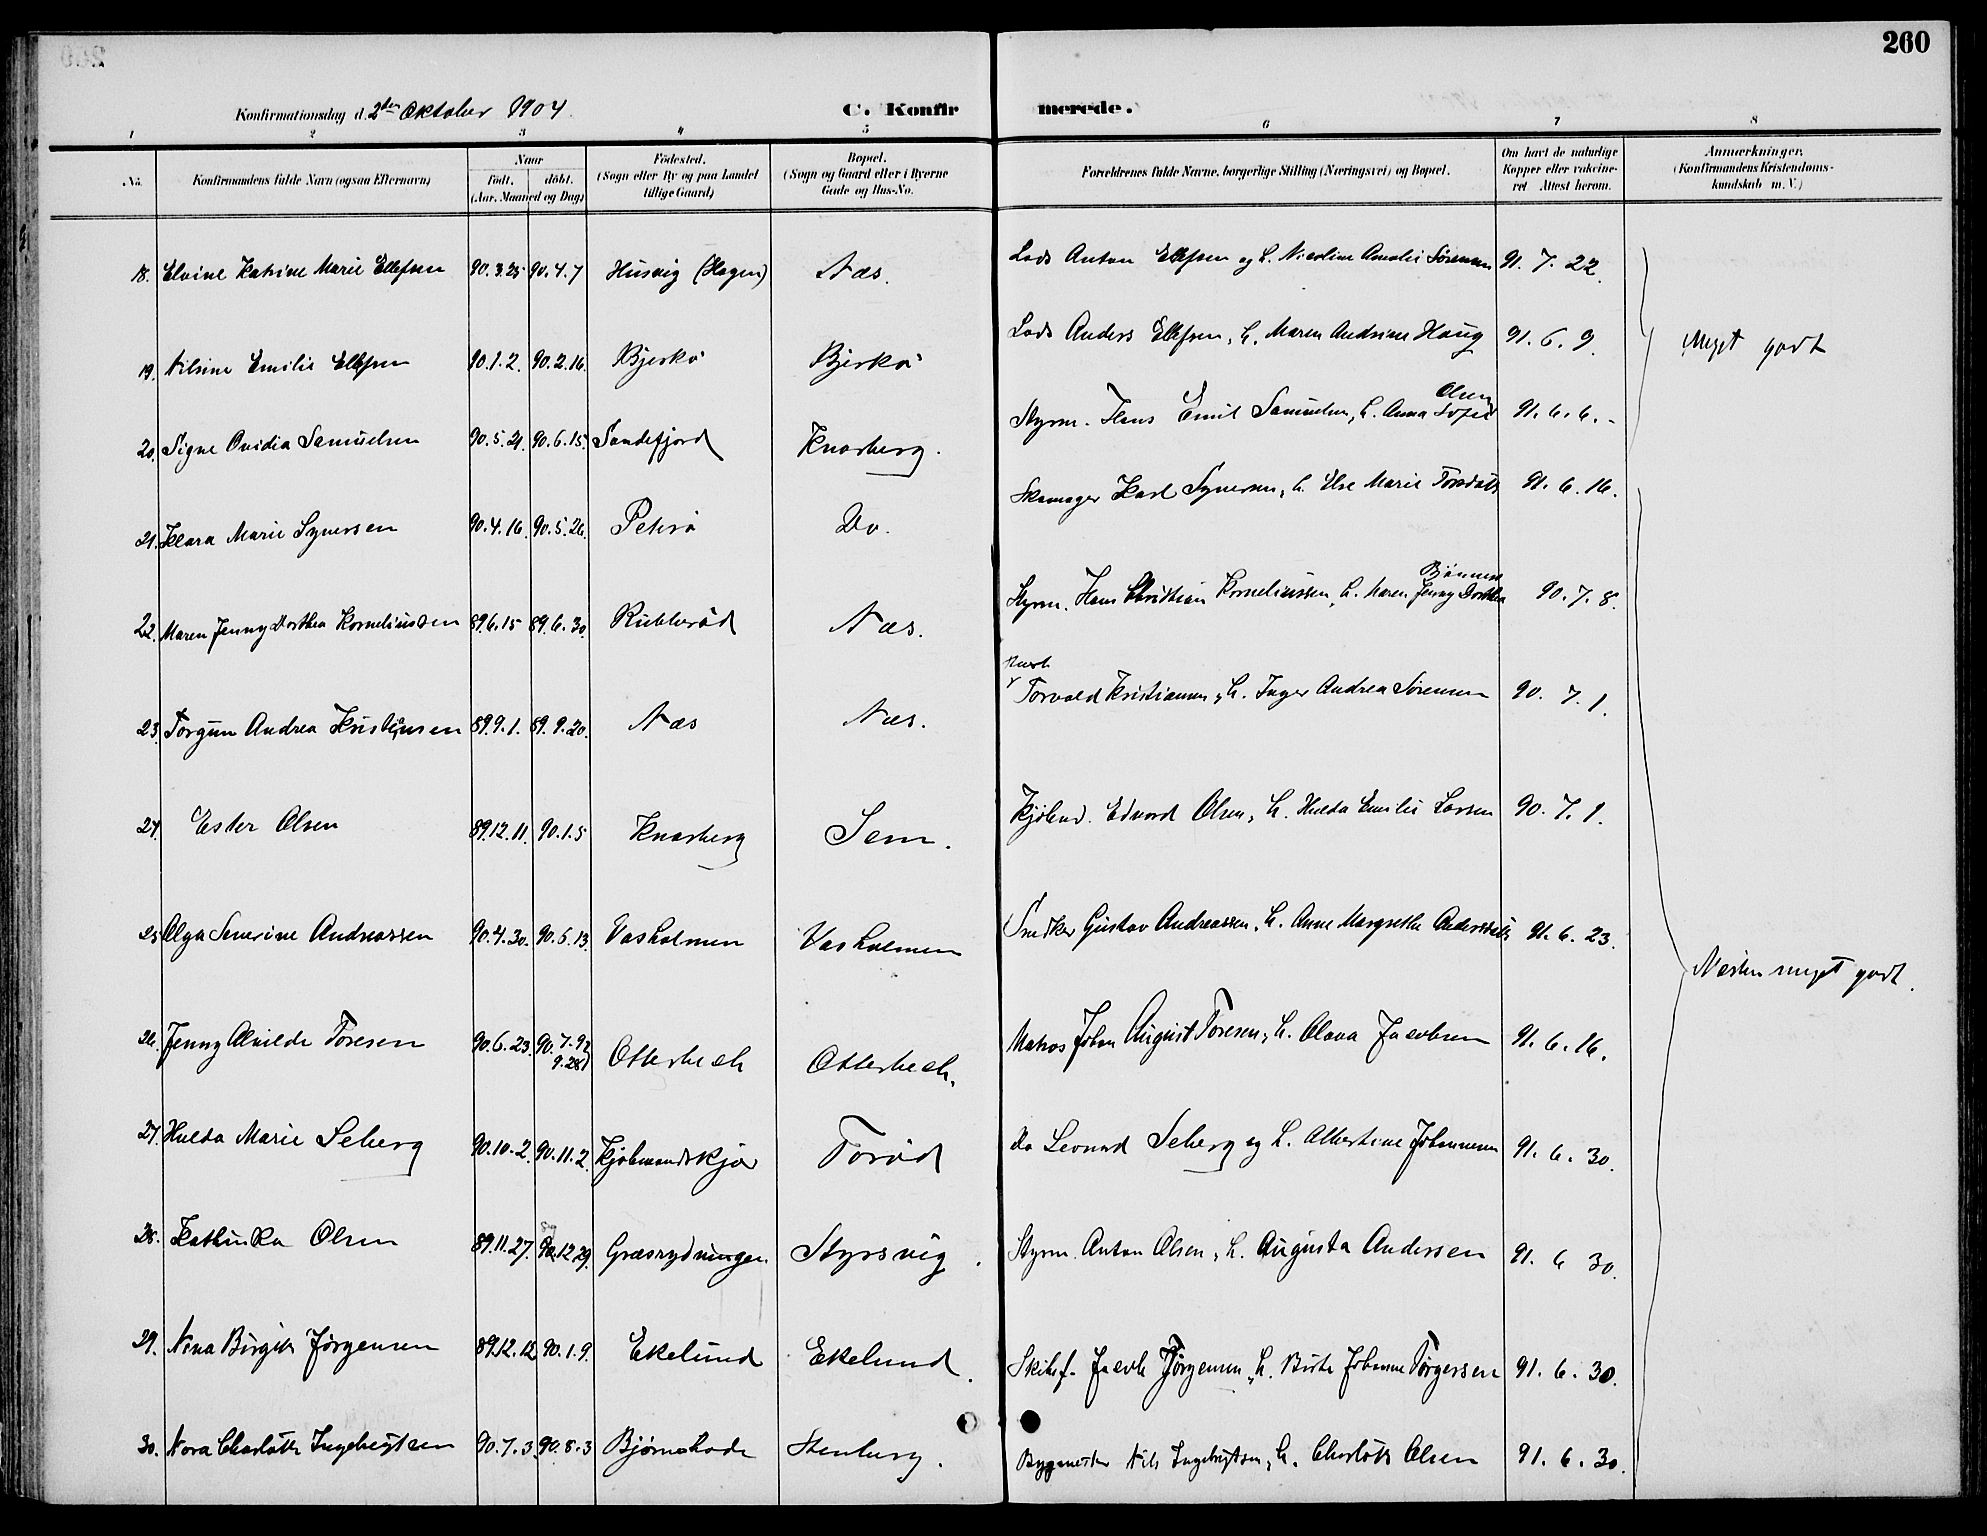 260
Konfirmationsdag d. 2den Oktober 1904. C. Konfirmerede.
1 2 3 4 5 6 7 8
No. Konfirmandens fulde Navn (ogsaa Efternavn) Naar födt. döbt. (Aar. Maaned og Dag) Födested. (Sogn eller By og paa Landet tillige Gaard) Bopæl. (Sogn og Gaard eller i Byerne Gade og Hus-No. Forældrenes fulde Navne, borgerlige Stilling (Næringsvei) og Bopæl. Om havt de naturlige Kopper eller vakcineret Attest herom. Anmærkninger. (Konfirmandens Kristendomskundskab m. V.)
18. Elvine Katrine Marie Ellefsen 90.3.25 90.4.7 Husvig (Hagen) Næs. Lods Anton Ellefsen og h. Nicoline Amalie Sørensen 91.7.22.
19. Nilsine Emilie Ellefsen 90.1.2. 90.2.16. Bjerkø Bjerkø Lods Anders Ellefsen, h. Maren Andrine Haug 91.6.9. Meget godt
20. Signe Ovidia Samuelsen 90.5.21. 90.6.15. Sandefjord Knarberg. Styrm. Hans Emil Samuelsen, h. Anna Sofie Olsen 91.6.6.
21. Klara Marie Syversen 90.4.16. 90.5.26. Peterø Do. Skomager Karl Syversen, h. Else Marie Torsdatt 91.6.16.
22. Maren Jenny Dorthea Korneliussen 89.6.15 89.6.30. Rubberød Næs. Styrm. Hans Christian Korneliussen, h. Maren Jenny Dorthea 90.7.8.
23. Torgun Andrea Kristiansen 89.9.1. 89.9.20. Næs Næs. Torvald Kristiansen, h. Inger Andrea Sørensen 90.7.1.
24. Ester Olsen 89.12.11. 90.1.5 Knarberg Sem. Kjøbmd. Edvard Olsen, h. Hulda Emilie Larsen 90.7.1.
25. Olga Severine Andreassen 90.4.30. 90.6.13. Vasholmen Vasholmen Snedker Gustav Andreassen, h. Anne Margrethe Andersdatt 91.6.23. Næsten meget godt.
26. Jenny Alvilde Toresen 90.6.23. 90.7.9 9.28) Otterbech Otterbech. Matros Johan August Toresen, h. Olava Jacobsen 91.6.16.
27. Hulda Marie Seberg 90.10.2. 90.11.2. Kjøbmandskjær Torød Do Leonard Seberg og h. Albertine Johannesen 91.6.30.
28. Kathinka Olsen 89.11.27. 89 12.29. Græsrydningen Styrsvig. Styrm. Anton Olsen, h. Augusta Andersen 91.6 30.
29. Nina Birgitte Jørgensen 89.12.12 90.1.9. Ekelund Ekelund. Skibsf. Jacob Jørgensen, h. Birte Johanne Torgersen 91.6.30.
30. Nora Charlotte Ingebrigtsen 90.7.3 90.8.3 Bjørnebode Stenberg. Bygmester Nils Ingebrigtsen, h. Charlotte Olsen 91.6.30.